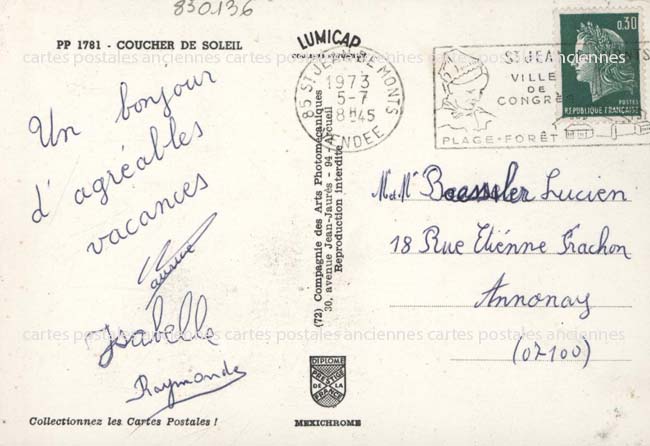 830.136
PP 1781 - COUCHER DE SOLEIL
Un bonjour
d'agréables
vacances
Isabelle
Raymonde
Collectionnez les Cartes Postales !
LUMICAP
85 ST JEAN-DE-MONTS
1973
5-7
8H45
VENDEE
(72) Compagnie des Arts Photomécaniques
30, avenue Jean-Jaurès - 94 - Arcueil
Reproduction interdite
DIPLOME
PRESTIGE
DE LA
FRANCE
MEXICHROME
ST JEAN
VILLE
DE
CONGRÈS
PLAGE-FORÊT
0,30
POSTES
REPUBLIQUE FRANÇAISE
M et Me Lucien
18 Rue Etiénne Frachon
Annonay
(07100)
cartes postales anciennes cartes postales anciennes cartes postales anciennes
cartes postales anciennes cartes postales anciennes cartes postales anciennes
cartes postales anciennes cartes postales anciennes cartes postales anciennes